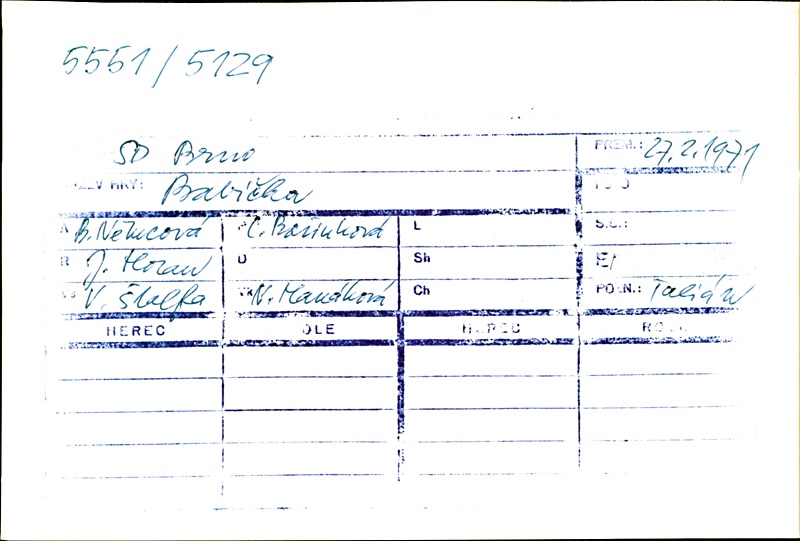 5551/5129
SD Brno PREM.: 27.2.1971
HRY: Babička
A B. Němcová C. Bařinková L
R J. Moran D Sh
V. Štolfa N. Manáková Ch POZN.: Talián
HEREC OLE HEREC ROL